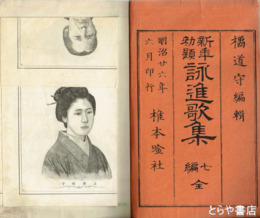 橘道守編輯
新年
勅題
詠進歌集
七編
全
明治廿六年
六月印行
椎本吟社
とらや書店